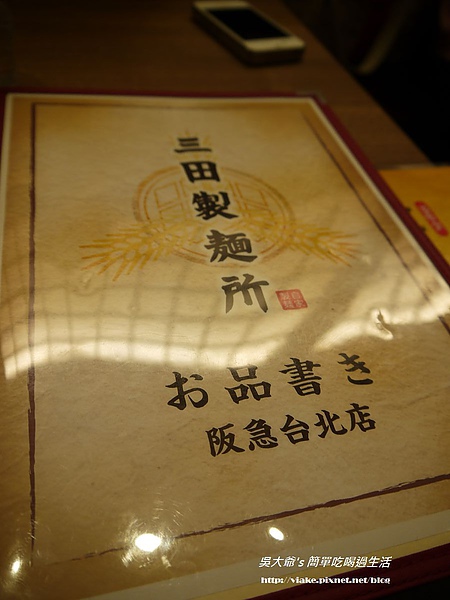 三田製麺所
お品書き
阪急台北店
吳大爺's 簡單吃喝過生活
http://viake.pixnet.net/blog